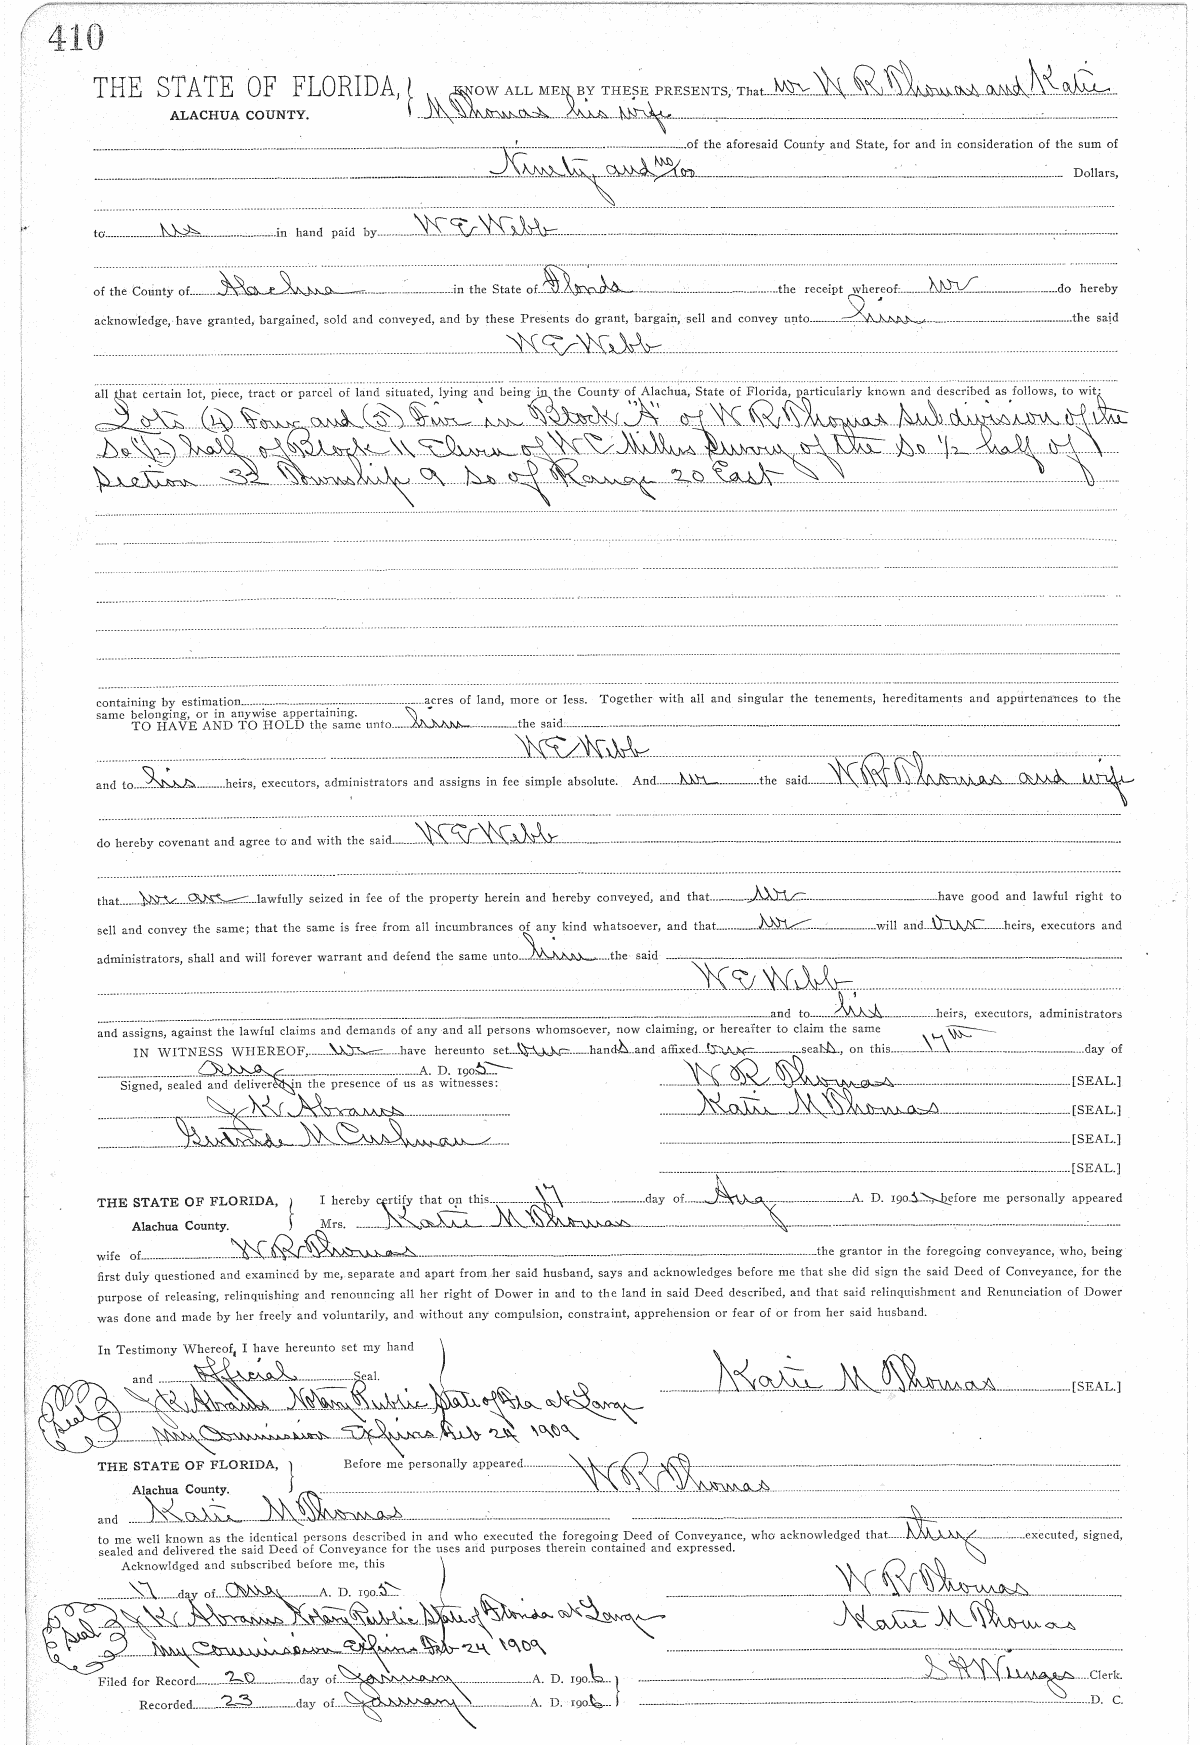 410
THE STATE OF FLORIDA, KNOW ALL MEN BY THESE PRESENTS, That we W R Thomas and Katie
ALACHUA COUNTY. M Thomas his wife
of the aforesaid County and State, for and in consideration of the sum of
Ninety and no/100 Dollars,
to us in hand paid by W E Webb
of the County of Alachua in the State of Florida the receipt whereof we do hereby
acknowledge, have granted, bargained, sold and conveyed, and by these Presents do grant, bargain, sell and convey unto him the said
W E Webb
all that certain lot, piece, tract or parcel of land situated, lying and being in the County of Alachua, State of Florida, particularly known and described as follows, to wit:
Lots (4) Four and (5) Five in Block "A" of W R Thomas Subdivision of the
So (1/2) half of Block 11 Eleven of W C Millers Survey of the So 1/2 half of
Section 32 Township 9 So of Range 20 East
containing by estimation acres of land, more or less. Together with all and singular the tenements, hereditaments and appurtenances to the
same belonging, or in anywise appertaining.
TO HAVE AND TO HOLD the same unto him the said
W E Webb
and to his heirs, executors, administrators and assigns in fee simple absolute. And we the said W R Thomas and wife
do hereby covenant and agree to and with the said W E Webb
that we are lawfully seized in fee of the property herein and hereby conveyed, and that we have good and lawful right to
sell and convey the same; that the same is free from all incumbrances of any kind whatsoever, and that we will and our heirs, executors and
administrators, shall and will forever warrant and defend the same unto him the said
W E Webb
and to his heirs, executors, administrators
and assigns, against the lawful claims and demands of any and all persons whomsoever, now claiming, or hereafter to claim the same
IN WITNESS WHEREOF, we have hereunto set our hands and affixed our seals, on this 17th day of
Aug A. D. 1905
Signed, sealed and delivered in the presence of us as witnesses: W R Thomas [SEAL.]
J K Abrams Katie M Thomas [SEAL.]
Gertrude M Cushman [SEAL.]
[SEAL.]
THE STATE OF FLORIDA, I hereby certify that on this 17 day of Aug A. D. 1905 before me personally appeared
Alachua County. Mrs. Katie M Thomas
wife of W R Thomas the grantor in the foregoing conveyance, who, being
first duly questioned and examined by me, separate and apart from her said husband, says and acknowledges before me that she did sign the said Deed of Conveyance, for the
purpose of releasing, relinquishing and renouncing all her right of Dower in and to the land in said Deed described, and that said relinquishment and Renunciation of Dower
was done and made by her freely and voluntarily, and without any compulsion, constraint, apprehension or fear of or from her said husband.
In Testimony Whereof, I have hereunto set my hand
and official Seal. Katie M Thomas [SEAL.]
Seal J K Abrams Notary Public State of Fla at Large
My Commission Expires Feb 24 1909
THE STATE OF FLORIDA, Before me personally appeared W R Thomas
Alachua County.
and Katie M Thomas
to me well known as the identical persons described in and who executed the foregoing Deed of Conveyance, who acknowledged that they executed, signed,
sealed and delivered the said Deed of Conveyance for the uses and purposes therein contained and expressed.
Acknowldged and subscribed before me, this
17 day of Aug A. D. 1905 W R Thomas
Seal J K Abrams Notary Public State of Florida at Large Katie M Thomas
My Commission Expires Feb 24 1909
Filed for Record 20 day of January A. D. 1906 S H Wienges Clerk.
Recorded 23 day of January A. D. 1906 D. C.